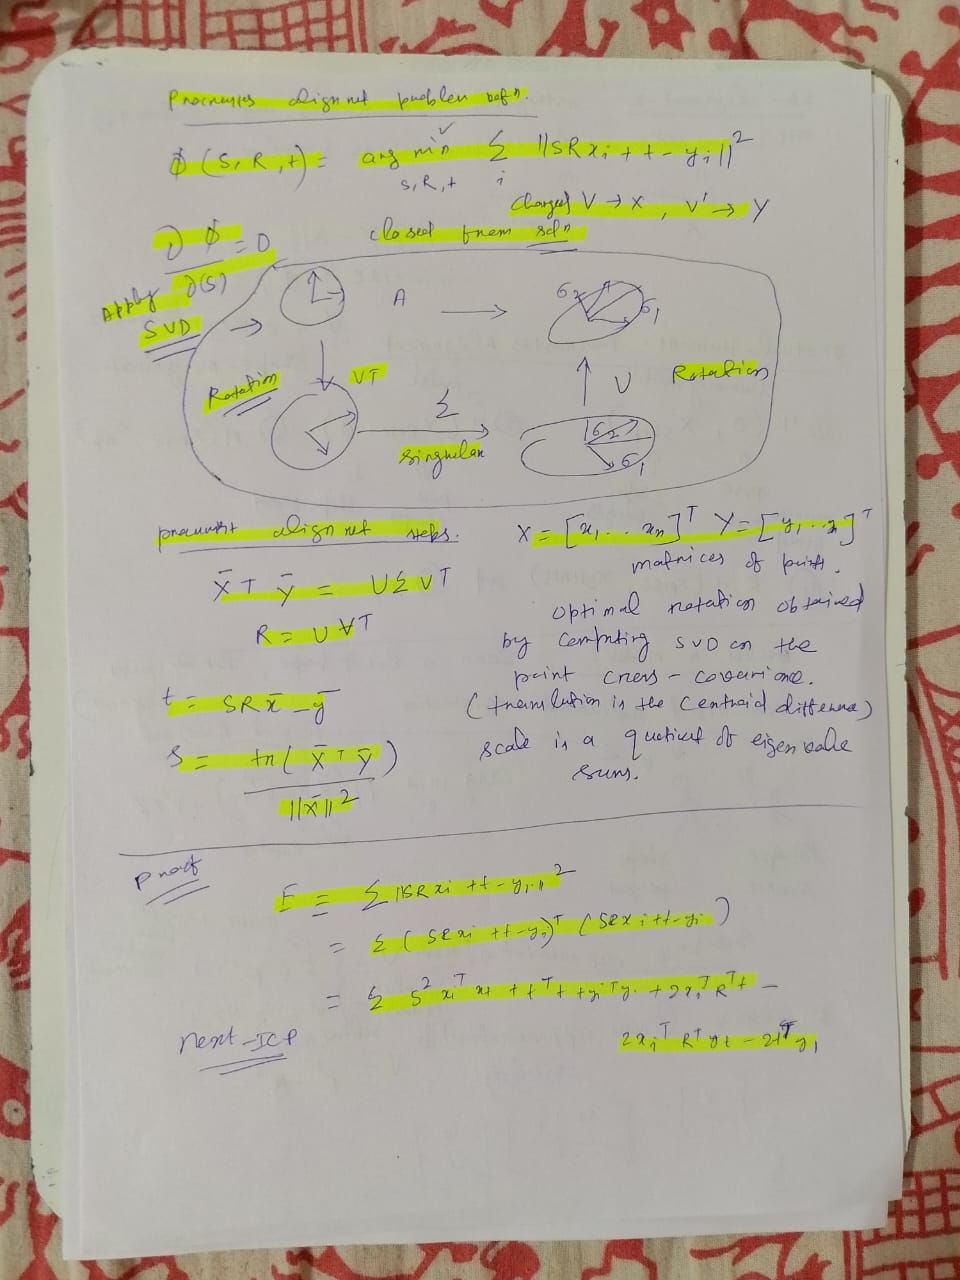 Procrustes alignmet problem defn.
φ (S, R, t) = arg min Σ ||SRxi + t - yi||²
S, R, t i
Changed V → X, V' → Y
∂φ = 0 closed from soln
∂(S)
Apply
SVD →
A
σ2 σ1
Rotation VT
U Rotation
Σ
singular
σ2
σ1
alignmet steps. X = [x1 .. xn]T Y = [y1 .. ]T
matrices of points.
X̄T Ȳ = UΣVT
optimal rotation obtained
R = UVT
by computing SVD on the
point cross-covariance.
t = SRx̄ - ȳ
(translation is the centroid difference)
scale is a quotient of eigen value
sums.
S = tr(X̄TȲ)
||x̄||²
Proof
E = Σ ||SRxi + t - yi||²
= Σ (SRxi + t - yi)T (SRxi + t - yi)
= Σ S² xiT xi + tTt + yiTyi + 2xiT RTt -
2xiT RT yi - 2tT yi
Next - ICP